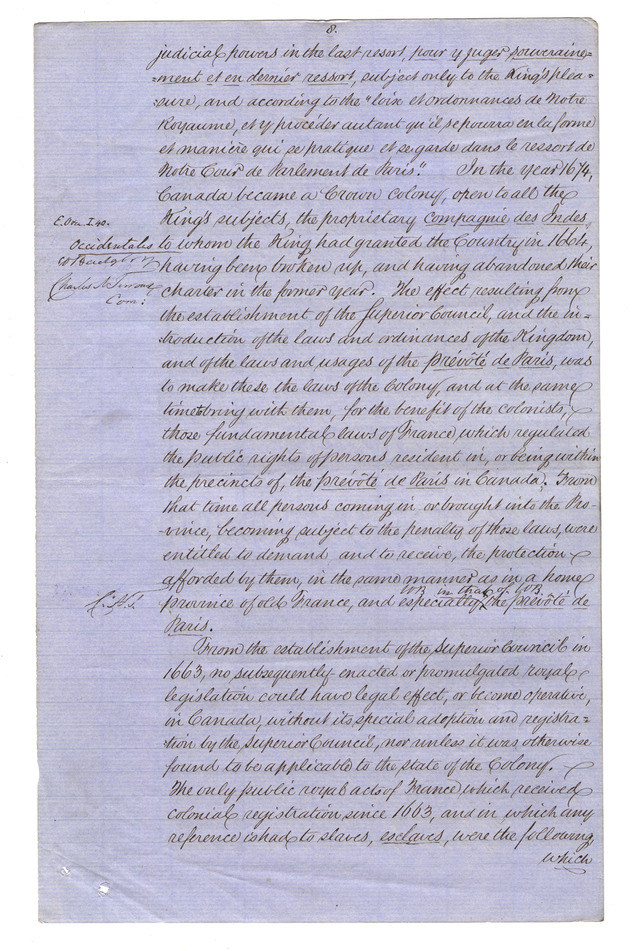 8.
judicial powers in the last resort, pour y juger souveraine=
=ment et en dernier ressort, subject only to the King's plea=
=sure, and according to the "loix et ordonnances de Notre
Royaume, et y procéder autant qu'il se pourra en la forme
et manière qui se pratique et se garde dans le ressort de
Notre Cour de Parlement de Paris." In the year 1674,
Canada became a Crown colony, open to all the
E. Orn. I. 40.
King's subjects, the proprietary compagnie des Indes
Occidentales to whom the King had granted the Country in 1664,
having been broken up, and having abandoned their
Charles
Com:
charter in the former year. The effect resulting from
the establishment of the Superior Council, and the in=
=troduction of the laws and ordinances of the Kingdom,
and of the laws and usages of the prévôté de Paris, was
to make these the laws of the Colony, and at the same
time to bring with them, for the benefit of the colonists,
those fundamental laws of France which regulated
the public rights of persons resident in, or being within
the precincts of, the prévôté de Paris in Canada. From
that time all persons coming in or brought into the Pro=
=vince, becoming subject to the penalty of those laws, were
entitled to demand and to receive, the protection
afforded by them, in the same manner as in a home
WB in that of WB
province of old France, and especially ^ the prévôté de
Paris.
From the establishment of the Superior Council in
1663, no subsequently enacted or promulgated royal
legislation could have legal effect, or become operative,
in Canada, without its special adoption and registra=
=tion by the Superior Council, nor unless it was otherwise
found to be applicable to the state of the Colony.
The only public royal acts of France which received
colonial registration since 1663, and in which any
reference is had to slaves, esclaves, were the following,
which